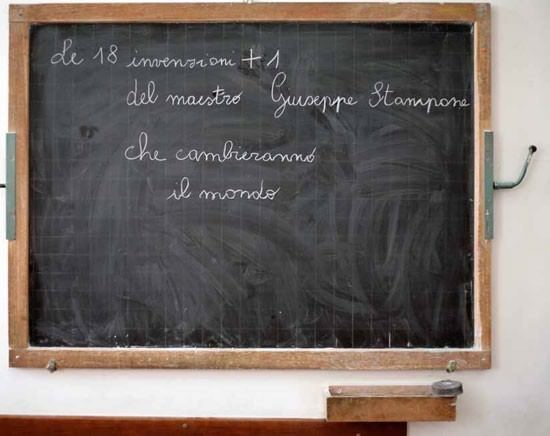 Le 18 invenzioni + 1
del maestro Giuseppe Stampone
che cambieranno
il mondo